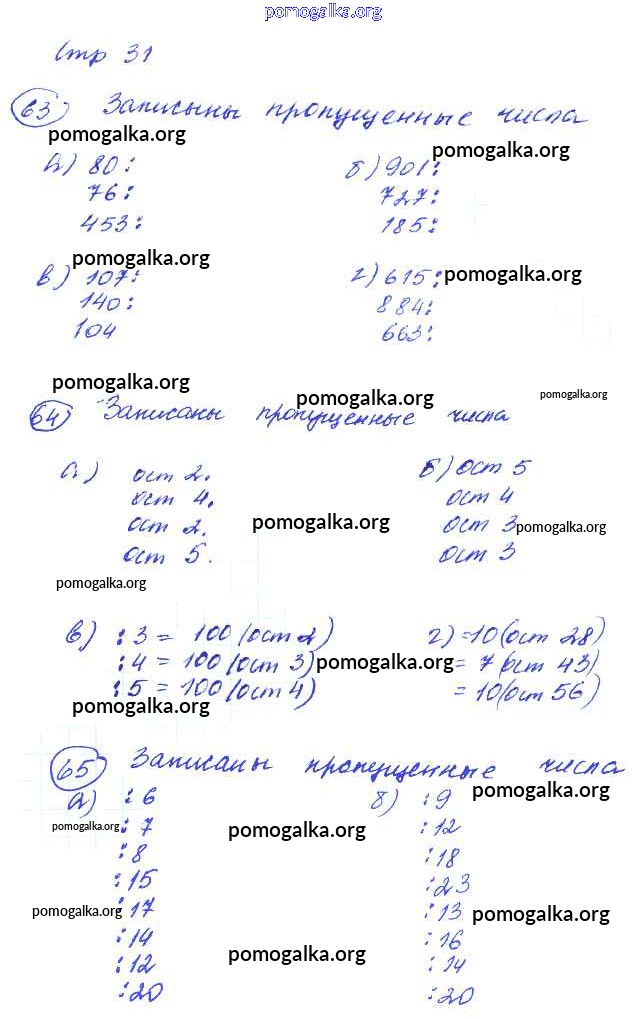 pomogalka.org
Стр 31
63) Записыны пропущенные числа
pomogalka.org pomogalka.org
а) 80: б) 901:
76: 727:
453: 185:
pomogalka.org
в) 107: г) 615: pomogalka.org
140: 884:
104 663:
pomogalka.org pomogalka.org pomogalka.org
64) Записаны пропущенные числа
а) ост 2. б) ост 5
ост 4. ост 4
ост 2. pomogalka.org ост 3 pomogalka.org
ост 5. ост 3
pomogalka.org
в) :3 = 100 (ост 2) г) =10 (ост 28)
:4 = 100 (ост 3) pomogalka.org = 7 (ост 43)
:5 = 100 (ост 4) = 10 (ост 56)
pomogalka.org
65) Записаны пропущенные числа
а) :6 б) :9 pomogalka.org
pomogalka.org :7 pomogalka.org :12
:8 :18
:15 :23
pomogalka.org :17 :13 pomogalka.org
:14 :16
:12 pomogalka.org :14
:20 :20